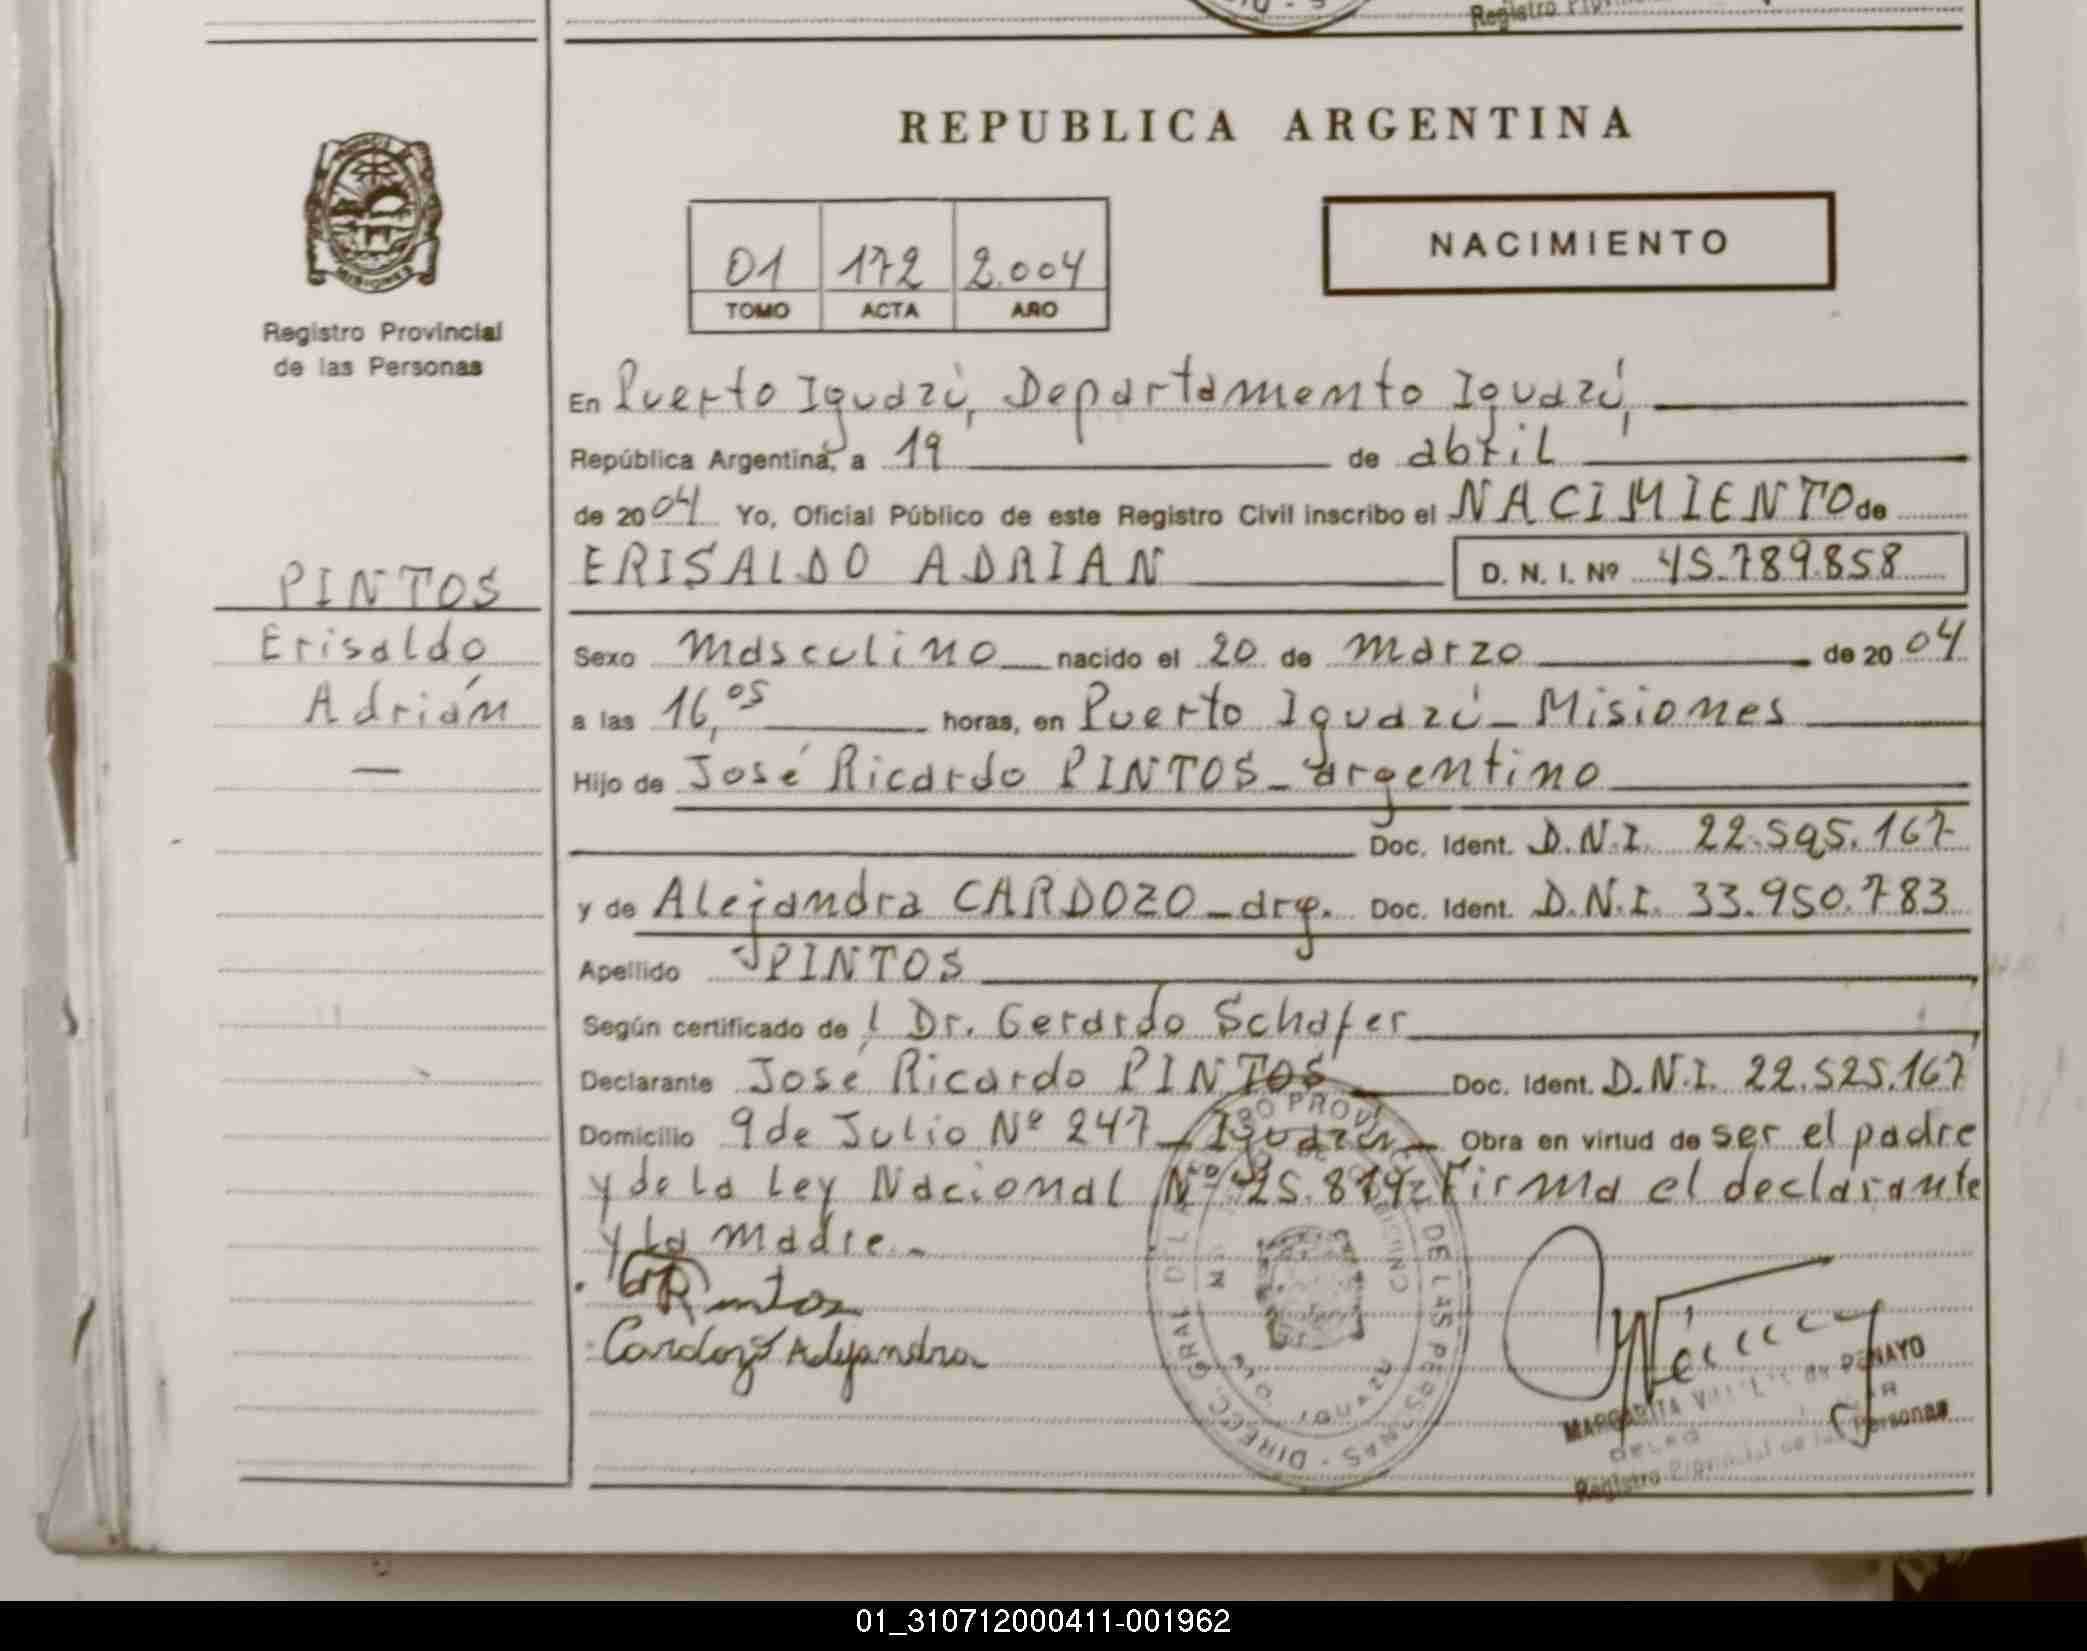 REPUBLICA ARGENTINA
NACIMIENTO
01 172 2.004
TOMO ACTA AÑO
Registro Provincial
de las Personas
PINTOS
Erisaldo
Adrián
—
En Puerto Iguazú, Departamento Iguazú,
República Argentina, a 19 de abril
de 2004 Yo, Oficial Público de este Registro Civil inscribo el NACIMIENTO de
ERISALDO ADRIAN D. N. I. Nº 45.789.858
Sexo Masculino nacido el 20 de Marzo de 2004
a las 16,05 horas, en Puerto Iguazú - Misiones
Hijo de José Ricardo PINTOS - argentino
Doc. Ident. D.N.I. 22.595.167
y de Alejandra CARDOZO - arg. Doc. Ident. D.N.I. 33.950.783
Apellido PINTOS
Según certificado de Dr. Gerardo Schafer
Declarante José Ricardo PINTOS Doc. Ident. D.N.I. 22.525.167
Domicilio 9 de Julio Nº 247 - Iguazú - Obra en virtud de ser el padre
y de la Ley Nacional Nº 25.819 - Firma el declarante
y la madre.-
Pintos
Cardozo Alejandra
DIREC. GRAL DEL REGISTRO PROVINCIAL DE LAS PERSONAS
MARGARITA de PENAYO
Registro Provincial de las Personas
01_310712000411-001962